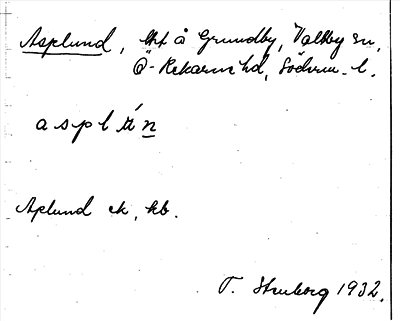 Asplund, lht å Grundby, Vallby sn,
Ö-Rekarne hd, Söderm. l.
Asplund ek, kb.
T. Struberg 1932.